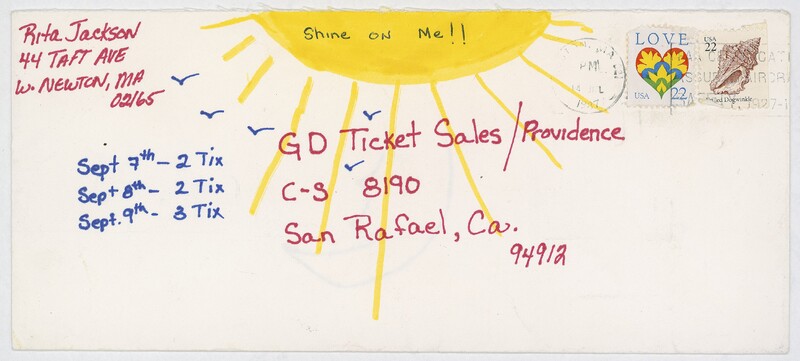 Rita Jackson
44 TAFT AVE
W. NEWTON, MA
02165
Shine on Me!!
LOVE
USA 22
USA
22
Frilled Dogwinkle
PM
1987
GD Ticket Sales/Providence
C-S 8190
San Rafael, Ca.
94912
Sept 7th - 2 Tix
Sept 8th - 2 Tix
Sept. 9th - 3 Tix